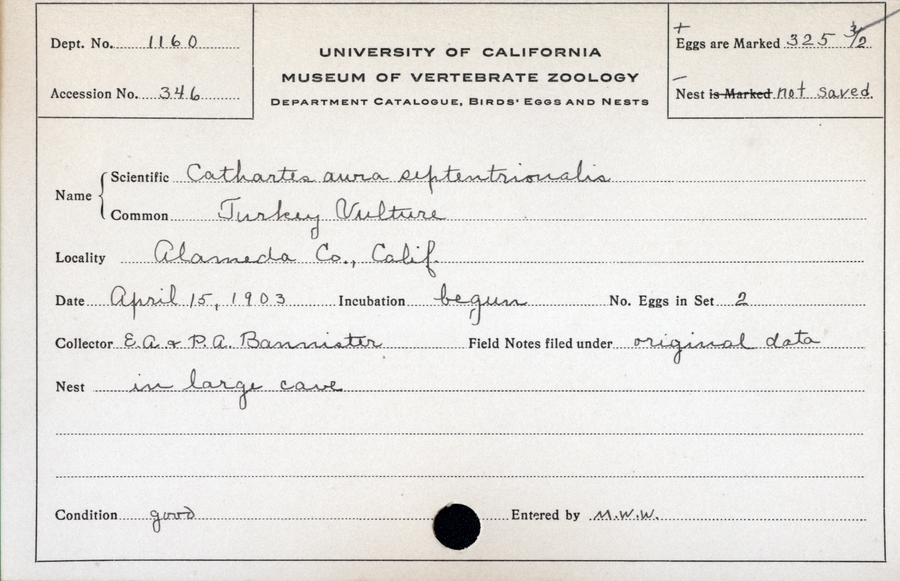 Dept. No. 1160
Accession No. 346
UNIVERSITY OF CALIFORNIA
MUSEUM OF VERTEBRATE ZOOLOGY
DEPARTMENT CATALOGUE, BIRDS' EGGS AND NESTS
+
Eggs are Marked 325 3/2
–
Nest is Marked not saved.
Name
Scientific Cathartes aura septentrionalis
Common Turkey Vulture
Locality Alameda Co., Calif.
Date April 15, 1903 Incubation begun No. Eggs in Set 2
Collector E.A. & P.A. Bannister Field Notes filed under original data
Nest in large cave
Condition good Entered by M.W.W.